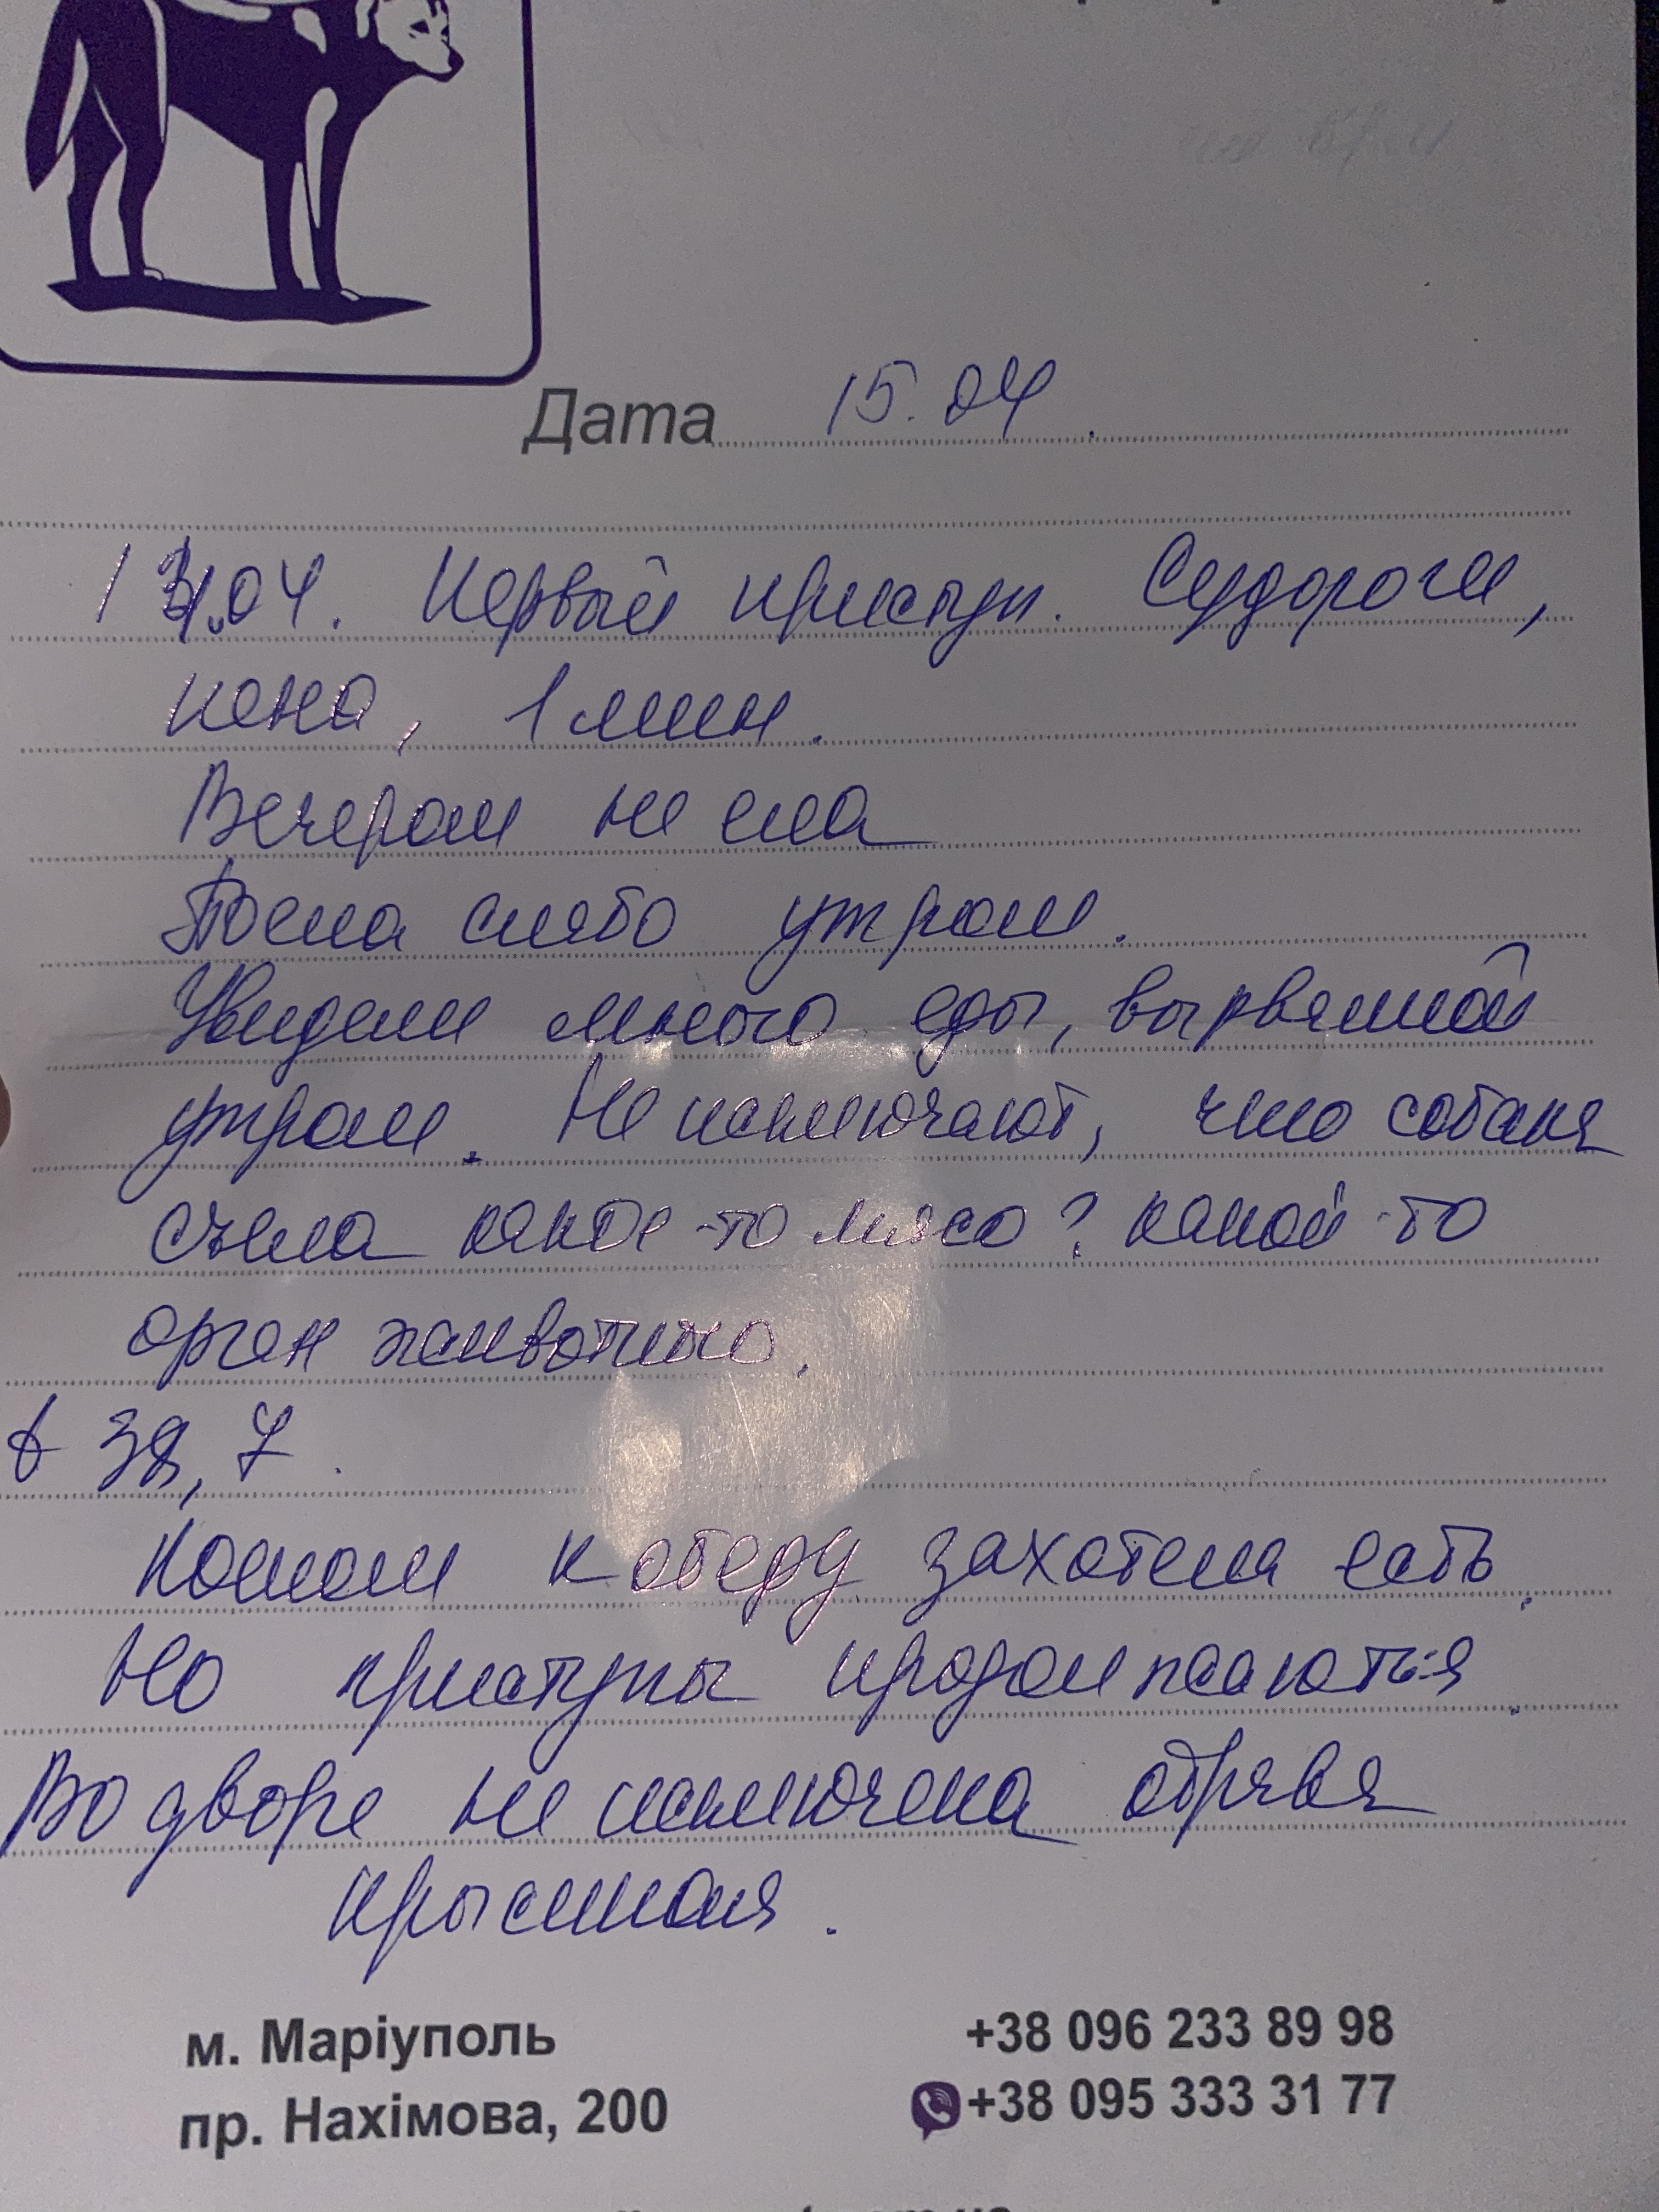 Дата 15.04.
13.04. Первый приступ. Судороги,
пена, 1 мин.
Вечером не ела
Поела слабо утром.
Увидели много еды, вырванной
утром. Не исключают, что собака
съела какое-то мясо? какой-то
орган животно.
t 38,7.
Потом к обеду захотела есть,
Но приступы продолжаються.
Во дворе не исключена отрава
крысиная.
м. Маріуполь +38 096 233 89 98
пр. Нахімова, 200 +38 095 333 31 77